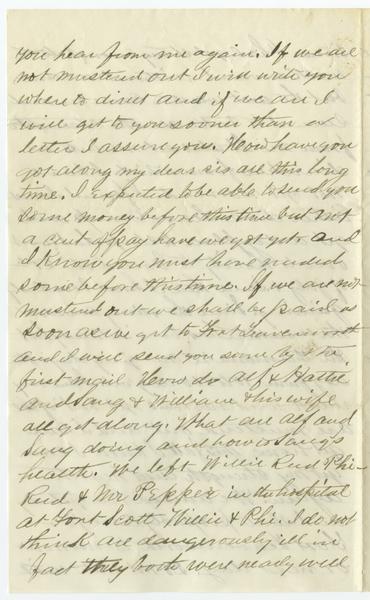 you hear from me again. If we are
not mustered out I will write you
where to direct and if we are I
will get to you sooner than a
letter I assure you. How have you
got along my dear sis are this long
time. I expected to be able to send you
some money before this time but not
a cent of pay have we got yet and
I know you must have needed
some before this time. If we are not
mustered out we shall be paid as
soon as we get to Fort Leavenworth
and I will send you some by the
first mail. How do Alf & Hattie
and Sang & William & his wife
all get along. What are Alf and
Sang doing and how is Sang's
health. We left Willie Reid Phi-
Reid & Mr Pepper in the hospital
at Fort Scott Willie & Phi. I do not
think are dangerously ill in
fact they both were nearly well